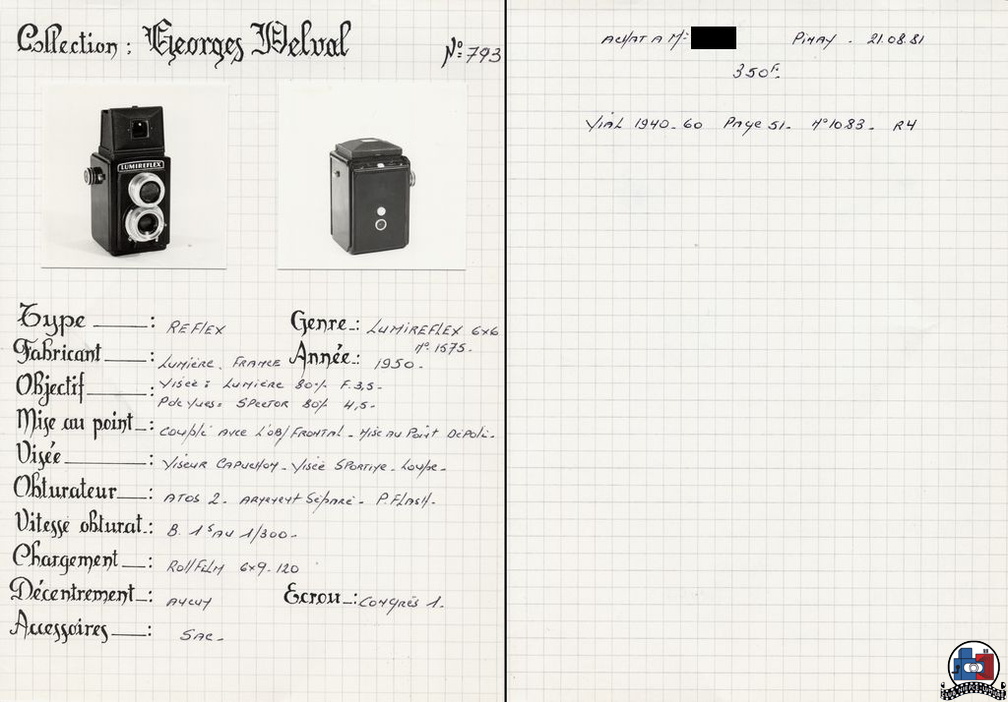 Collection : Georges Delval
N° 793
LUMIREFLEX
Type : REFLEX
Genre : LUMIREFLEX 6x6
n° 1575.
Fabricant : LUMIÈRE. FRANCE
Année : 1950.
Objectif : Visée : LUMIÈRE 80% F.3,5-
Pde Vues: SPECTOR 80% 4,5-
Mise au point : COUPLÉ AVEC L'OB/FRONTAL - MISE AU POINT DÉPOLI.
Visée : VISEUR CAPUCHON - VISÉE SPORTIVE - LOUPE -
Obturateur : ATOS 2 - ARMEMENT SÉPARÉ - P.FLASH.
Vitesse obturat. : B. 1s AU 1/300-
Chargement : ROLLFILM 6x9-120
Décentrement : AUCUN
Ecrou : CONGRÈS 1.
Accessoires : SAC -
ACHAT A Mr
PINAY - 21.08.81
350F.
VIAL 1940-60 PAGE 51. N°1083 - R4